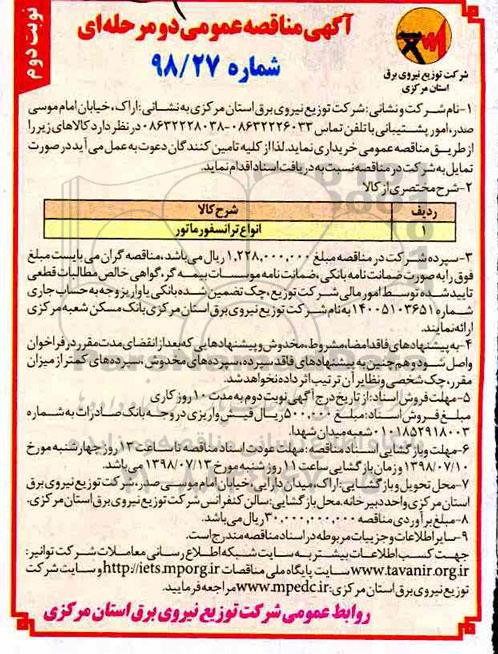 نوبت دوم
آگهی مناقصه عمومی دو مرحله‌ای
شماره ۹۸/۲۷
شرکت توزیع نیروی برق
استان مرکزی
۱-نام شرکت و نشانی: شرکت توزیع نیروی برق استان مرکزی به نشانی: اراک، خیابان امام موسی
صدر، امور پشتیبانی با تلفن تماس ۰۸۶۳۲۲۲۶۰۳۳-۰۸۶۳۲۲۲۸۰۳۸ در نظر دارد کالاهای زیر را
از طریق مناقصه عمومی خریداری نماید. لذا از کلیه تامین کنندگان دعوت به عمل می آید در صورت
تمایل به شرکت در مناقصه نسبت به دریافت اسناد اقدام نماید.
۲-شرح مختصری از کالا
ردیف شرح کالا
۱ انواع ترانسفورماتور
۳- سپرده شرکت در مناقصه مبلغ ۱,۲۲۸,۰۰۰,۰۰۰ ریال می باشد، مناقصه گران می بایست مبلغ
فوق را به صورت ضمانت نامه بانکی، ضمانت نامه موسسات بیمه گر، گواهی خالص مطالبات قطعی
تایید شده توسط امور مالی شرکت توزیع، چک تضمین شده بانکی یا واریز وجه به حساب جاری
شماره ۱۴۰۰۵۱۰۳۶۵۱ به نام شرکت توزیع نیروی برق استان مرکزی بانک مسکن شعبه مرکزی
ارائه نمایند.
۴-به پیشنهادهای فاقد امضا، مشروط، مخدوش و پیشنهادهایی که بعد از انقضای مدت مقرر در فراخوان
واصل شود و هم چنین به پیشنهادهای فاقد سپرده، سپرده های مخدوش، سپرده های کمتر از میزان
مقرر، چک شخصی و نظایر آن ترتیب اثر داده نخواهد شد.
۵-مهلت فروش اسناد: از تاریخ درج آگهی نوبت دوم به مدت ۱۰ روز کاری
مبلغ فروش اسناد: مبلغ ۵۰۰,۰۰۰ ریال فیش واریزی در وجه بانک صادرات به شماره
۰۱۰۱۸۵۲۹۱۸۰۰۳ شعبه میدان شهدا.
۶-مهلت و بازگشایی اسناد مناقصه: مهلت عودت اسناد مناقصه تا ساعت ۱۳ روز چهارشنبه مورخ
۱۳۹۸/۰۷/۱۰ و زمان بازگشایی ساعت ۱۱ روز شنبه مورخ ۱۳۹۸/۰۷/۱۳ می باشد.
۷-محل تحویل و بازگشایی: اراک، میدان دارایی، خیابان امام موسی صدر، شرکت توزیع نیروی برق
استان مرکزی واحد دبیرخانه. محل بازگشایی: سالن کنفرانس شرکت توزیع نیروی برق استان مرکزی.
۸-مبلغ برآوردی مناقصه ۳۰,۰۰۰,۰۰۰,۰۰۰ ریال می باشد.
۹-سایر اطلاعات و جزییات مربوطه در اسناد مناقصه مندرج است.
جهت کسب اطلاعات بیشتر به سایت شبکه اطلاع رسانی معاملات شرکت توانیر:
www.tavanir.org.ir سایت پایگاه ملی مناقصات http://iets.mporg.ir و سایت شرکت
توزیع نیروی برق استان مرکزی: www.mpedc.ir مراجعه فرمایید.
روابط عمومی شرکت توزیع نیروی برق استان مرکزی